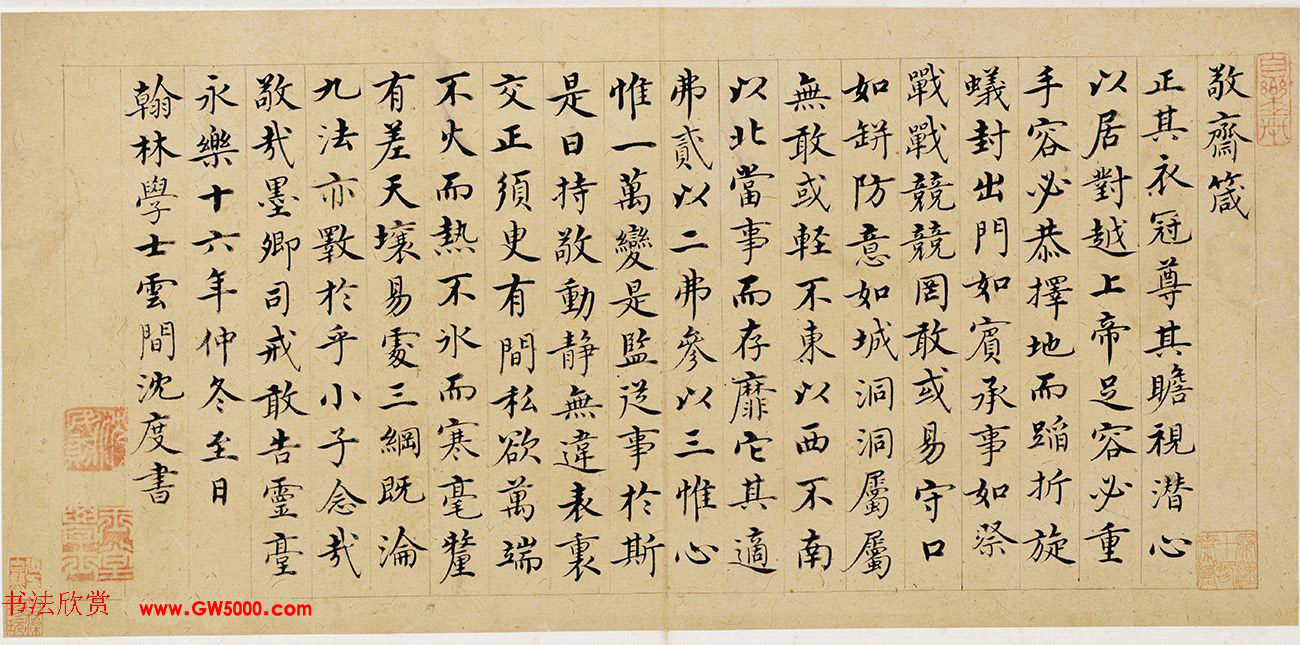 敬齋箴
正其衣冠尊其瞻視潛心
以居對越上帝足容必重
手容必恭擇地而蹈折旋
蟻封出門如賓承事如祭
戰戰競競罔敢或易守口
如缾防意如城洞洞屬屬
無敢或輕不東以西不南
以北當事而存靡它其適
弗貳以二弗參以三惟心
惟一萬變是監從事於斯
是曰持敬動靜無違表裏
交正須臾有間私欲萬端
不火而熱不氷而寒毫釐
有差天壤易處三綱既淪
九法亦斁於乎小子念哉
敬哉墨卿司戒敢告靈臺
永樂十六年仲冬至日
翰林學士雲間沈度書
书法欣赏 www.GW5000.com